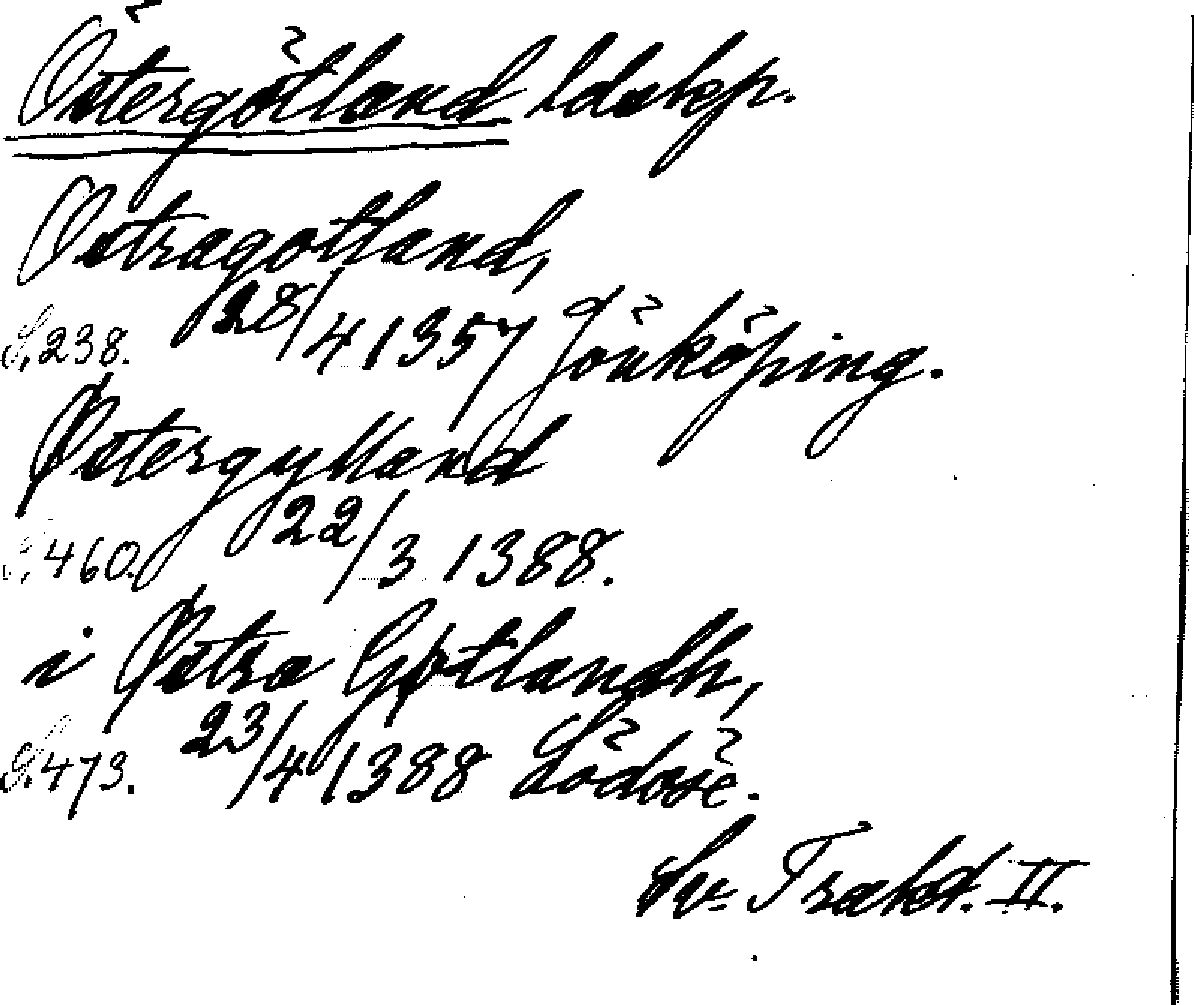 Östergötland ldskp.
Østragotland,
S. 238. 28/4 1357 Jönköping.
Østergylland
S. 460. 22/3 1388.
i Østra Gøtlandh,
S. 473. 23/4 1388 Lödöse.
Sv. Trakt. II.